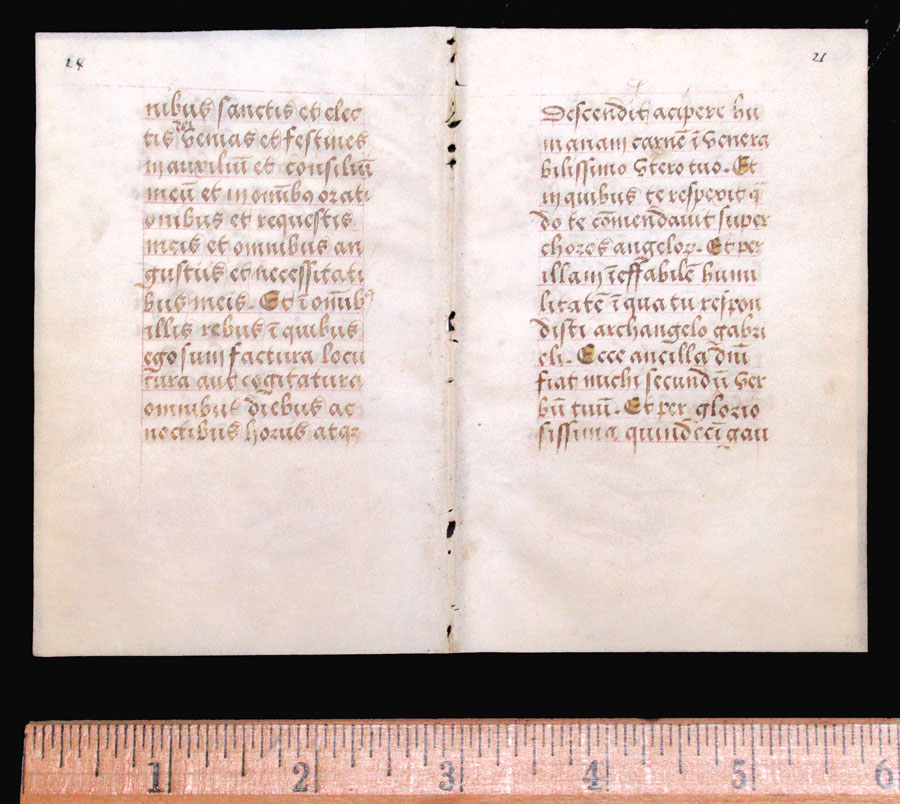 28
nibus sanctis et elec
tis
venias et festines
in auxiliū et consiliū
meū et in omībꝰ orati
onibus et requestis
meis et omnibus an
gustiis et necessitati
bus meis. Et ī omībꝰ
illis rebus ī quibus
ego sum factura locu
tura aut cogitatura
omnibus diebus ac
noctibus horis atqꝫ
21
Descendit accipere hu
manam carnē ī venera
bilissimo vtero tuo. Et
in quibus te respexit q̄
do te cōmendauit super
choros angeloꝝ. Et per
illam īeffabilē humi
litatē ī qua tu respon
disti archangelo gabri
eli. Ecce ancilla dn̄i
fiat michi secundū ver
bū tuū. Et per glorio
sissima quindecī gau
1 2 3 4 5 6